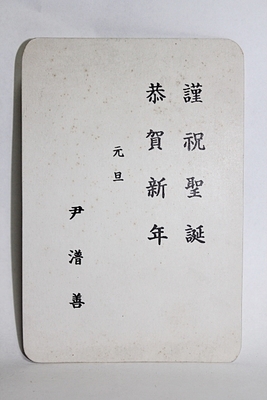 謹祝聖誕
恭賀新年
元旦
尹潽善